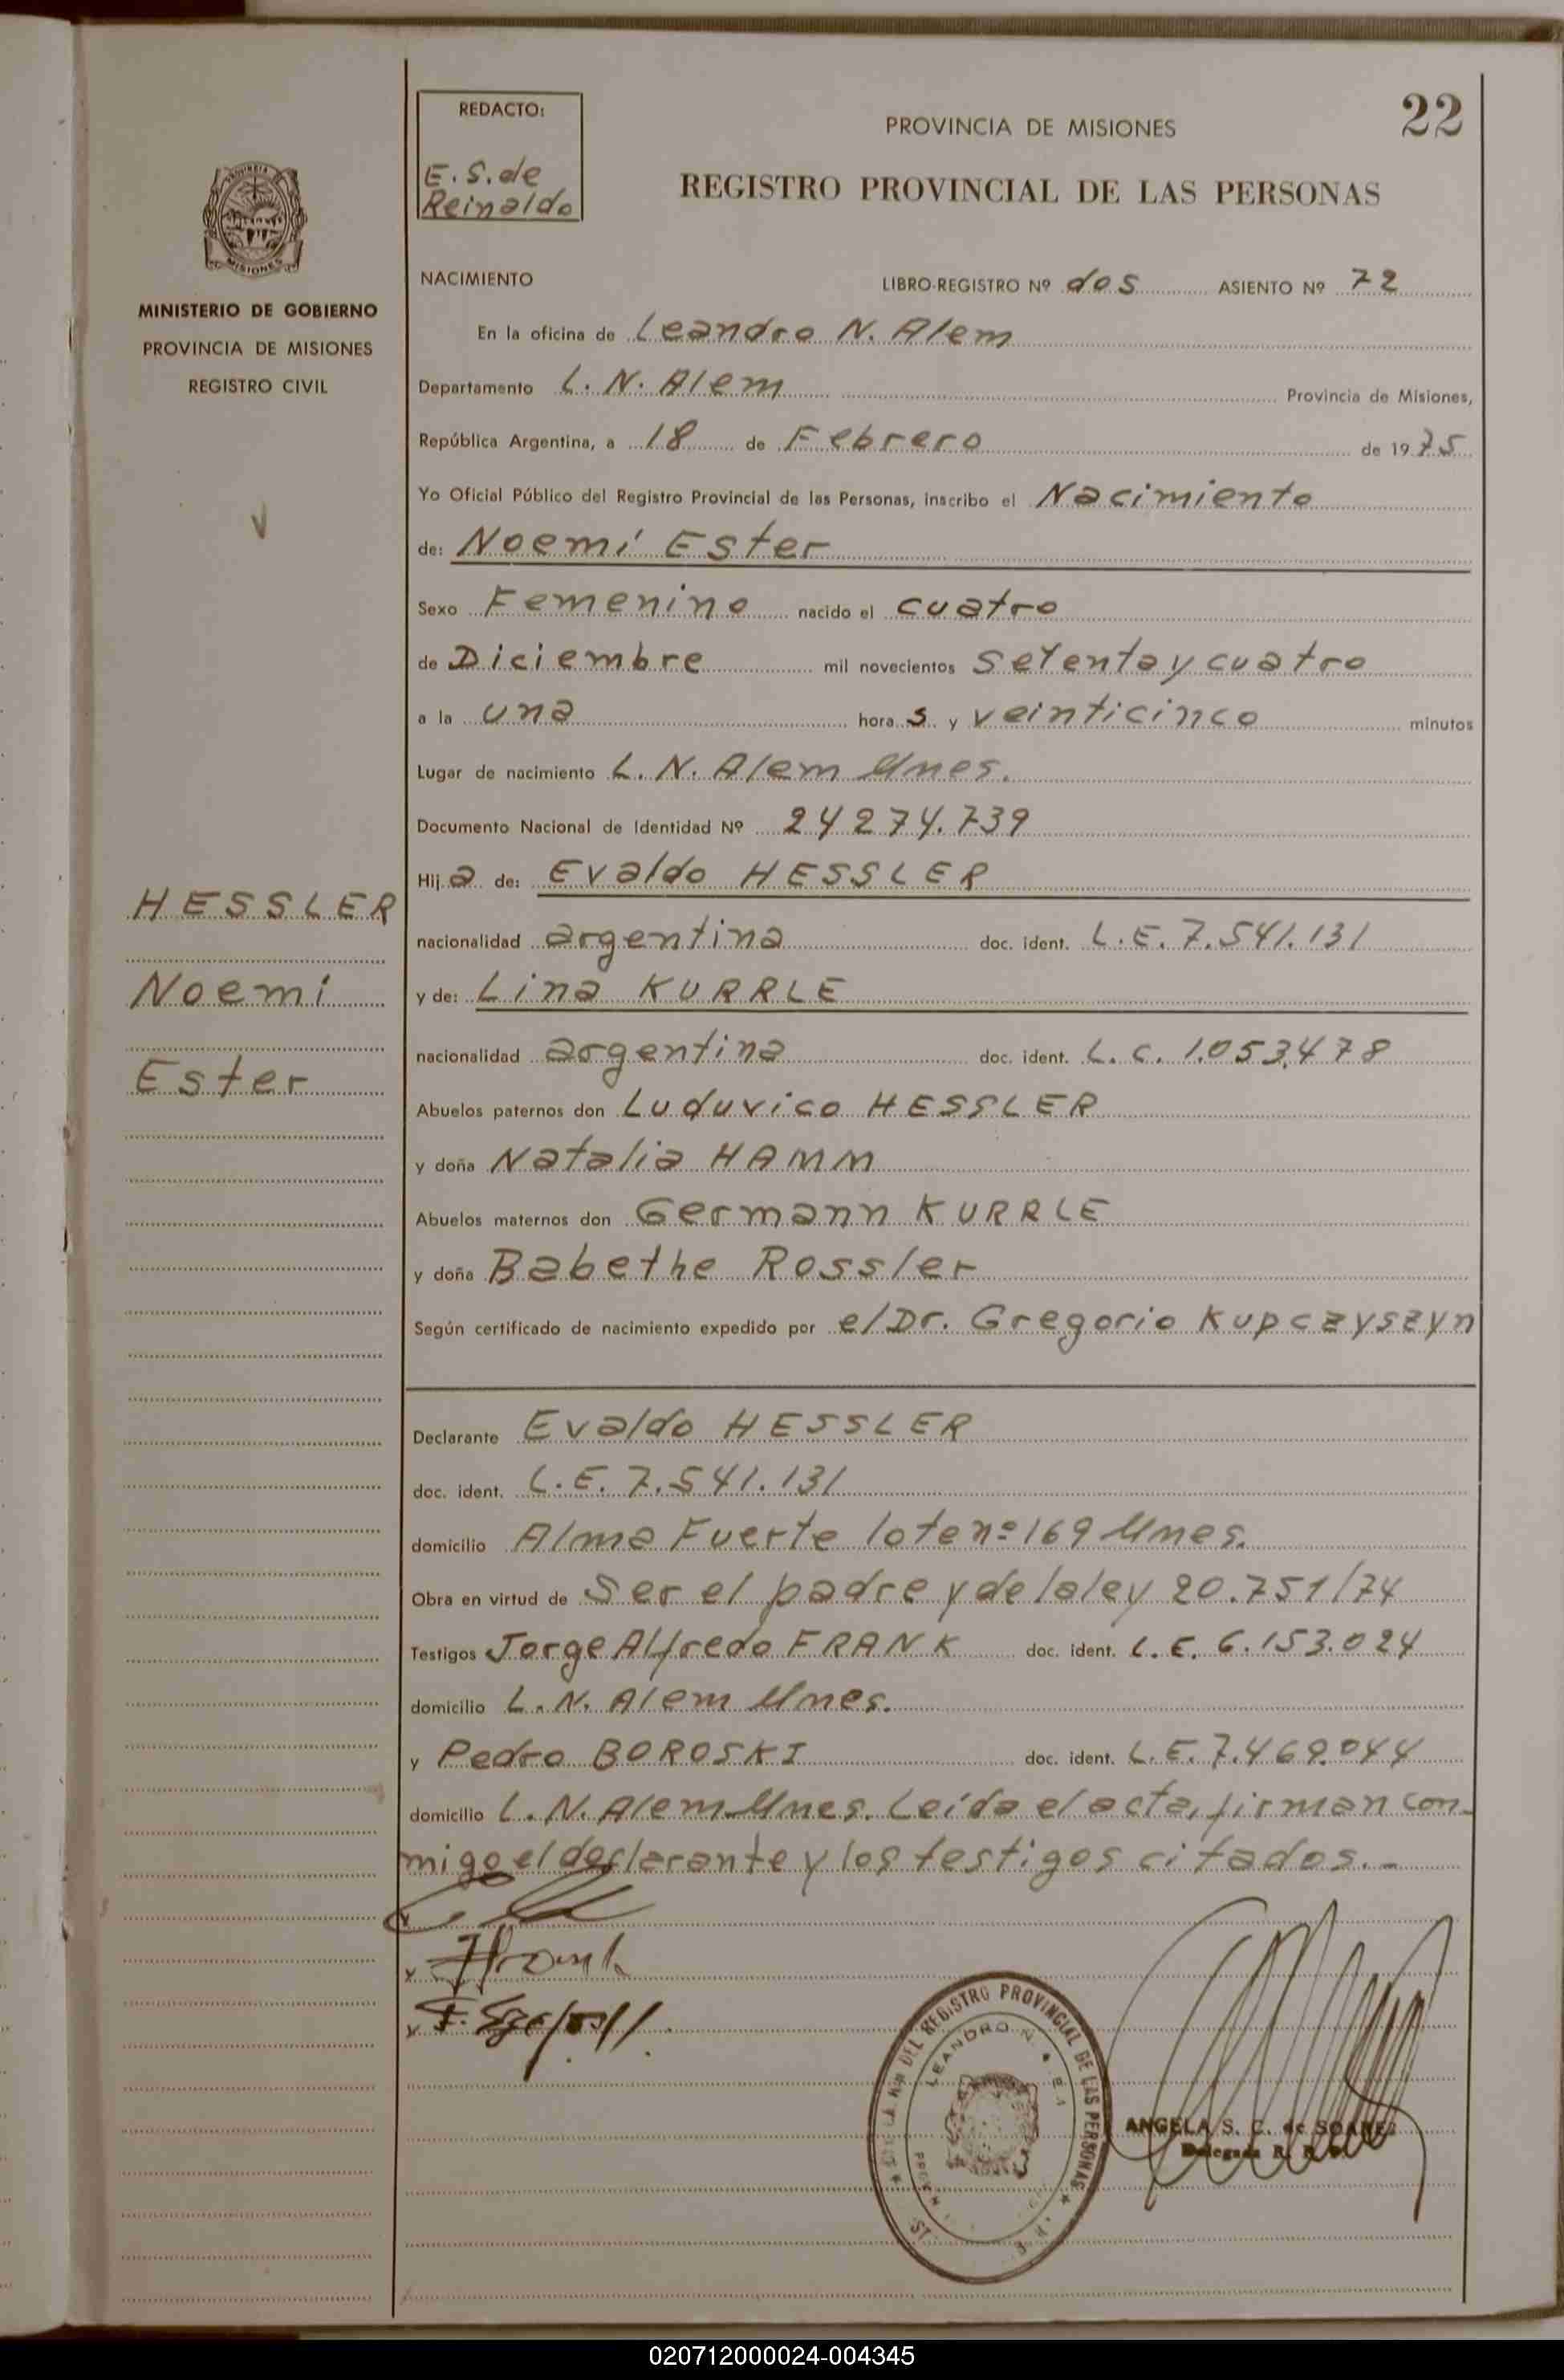 22
REDACTO:
E. S. de
Reinaldo
PROVINCIA DE MISIONES
REGISTRO PROVINCIAL DE LAS PERSONAS
MISIONES
MINISTERIO DE GOBIERNO
PROVINCIA DE MISIONES
REGISTRO CIVIL
HESSLER
Noemi
Ester
NACIMIENTO LIBRO-REGISTRO Nº dos ASIENTO Nº 72
En la oficina de Leandro N. Alem
Departamento L. N. Alem Provincia de Misiones,
República Argentina, a 18 de Febrero de 1975
Yo Oficial Público del Registro Provincial de las Personas, inscribo el Nacimiento
de: Noemí Ester
Sexo Femenino nacido el cuatro
de Diciembre mil novecientos setenta y cuatro
a la una hora s y veinticinco minutos
Lugar de nacimiento L. N. Alem Mnes.
Documento Nacional de Identidad Nº 24274.739
Hij a de: Evaldo HESSLER
nacionalidad argentina doc. ident. L. E. 7.541.131
y de: Lina KURRLE
nacionalidad argentina doc. ident. L. C. 1.053.478
Abuelos paternos don Luduvico HESSLER
y doña Natalia HAMM
Abuelos maternos don Germann KURRLE
y doña Babethe Rossler
Según certificado de nacimiento expedido por el Dr. Gregorio Kupczyszyn
Declarante Evaldo HESSLER
doc. ident. L. E. 7.541.131
domicilio Alma Fuerte lote nº 169 Mnes.
Obra en virtud de Ser el padre y de la ley 20.751/74
Testigos Jorge Alfredo FRANK doc. ident. L. E. 6.153.024
domicilio L. N. Alem Mnes.
y Pedro BOROSKI doc. ident. L. E. 7.469.044
domicilio L. N. Alem Mnes. Leída el acta, firman con-
migo el declarante y los testigos citados.-
DEL REGISTRO PROVINCIAL DE LAS PERSONAS
LEANDRO N.
ANGELA S. C. de SOAREZ
Delegada R. P. P.
020712000024-004345